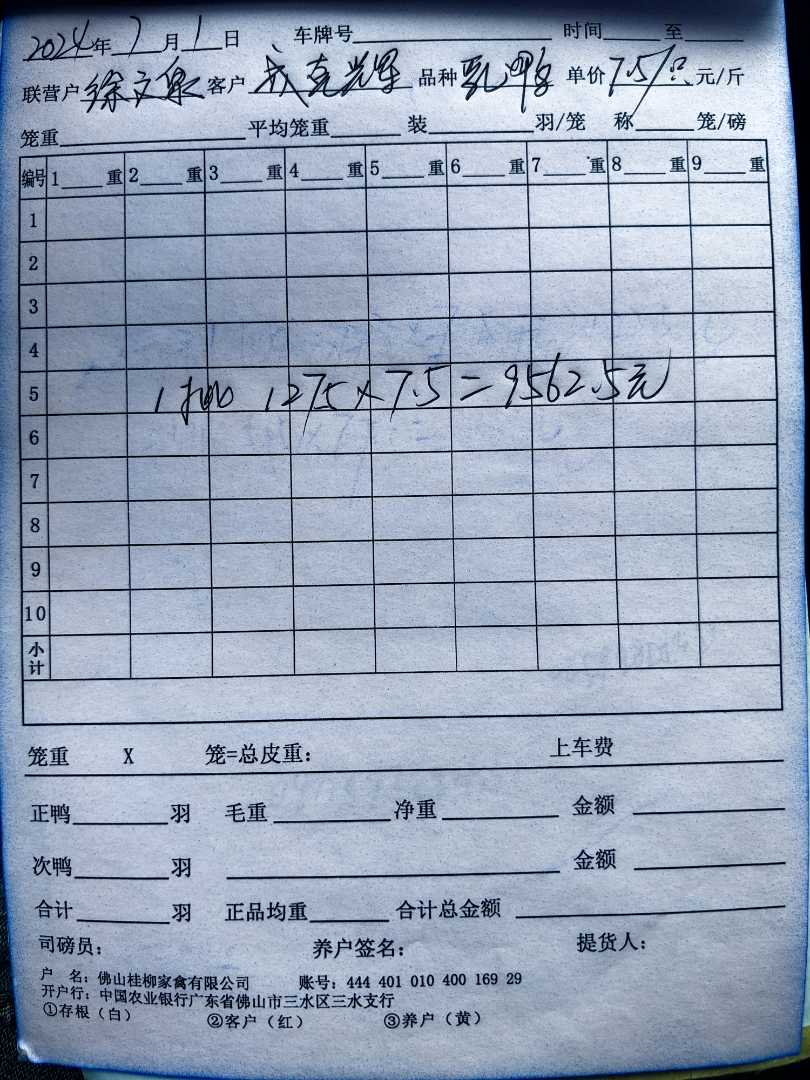 2024年7月1日 车牌号 时间 至
联营户 徐文泉 客户 成克辉 品种 乳鸭 单价 7.5/只 元/斤
笼重 平均笼重 装 羽/笼 称 笼/磅
编号 1 重 2 重 3 重 4 重 5 重 6 重 7 重 8 重 9 重
1
2
3
4
5 1275×7.5=9562.5元
6
7
8
9
10
小计
笼重 X 笼=总皮重: 上车费
正鸭 羽 毛重 净重 金额
次鸭 羽 金额
合计 羽 正品均重 合计总金额
司磅员: 养户签名: 提货人:
户 名: 佛山桂柳家禽有限公司 账号: 444 401 010 400 169 29
开户行: 中国农业银行广东省佛山市三水区三水支行
①存根(白) ②客户(红) ③养户(黄)